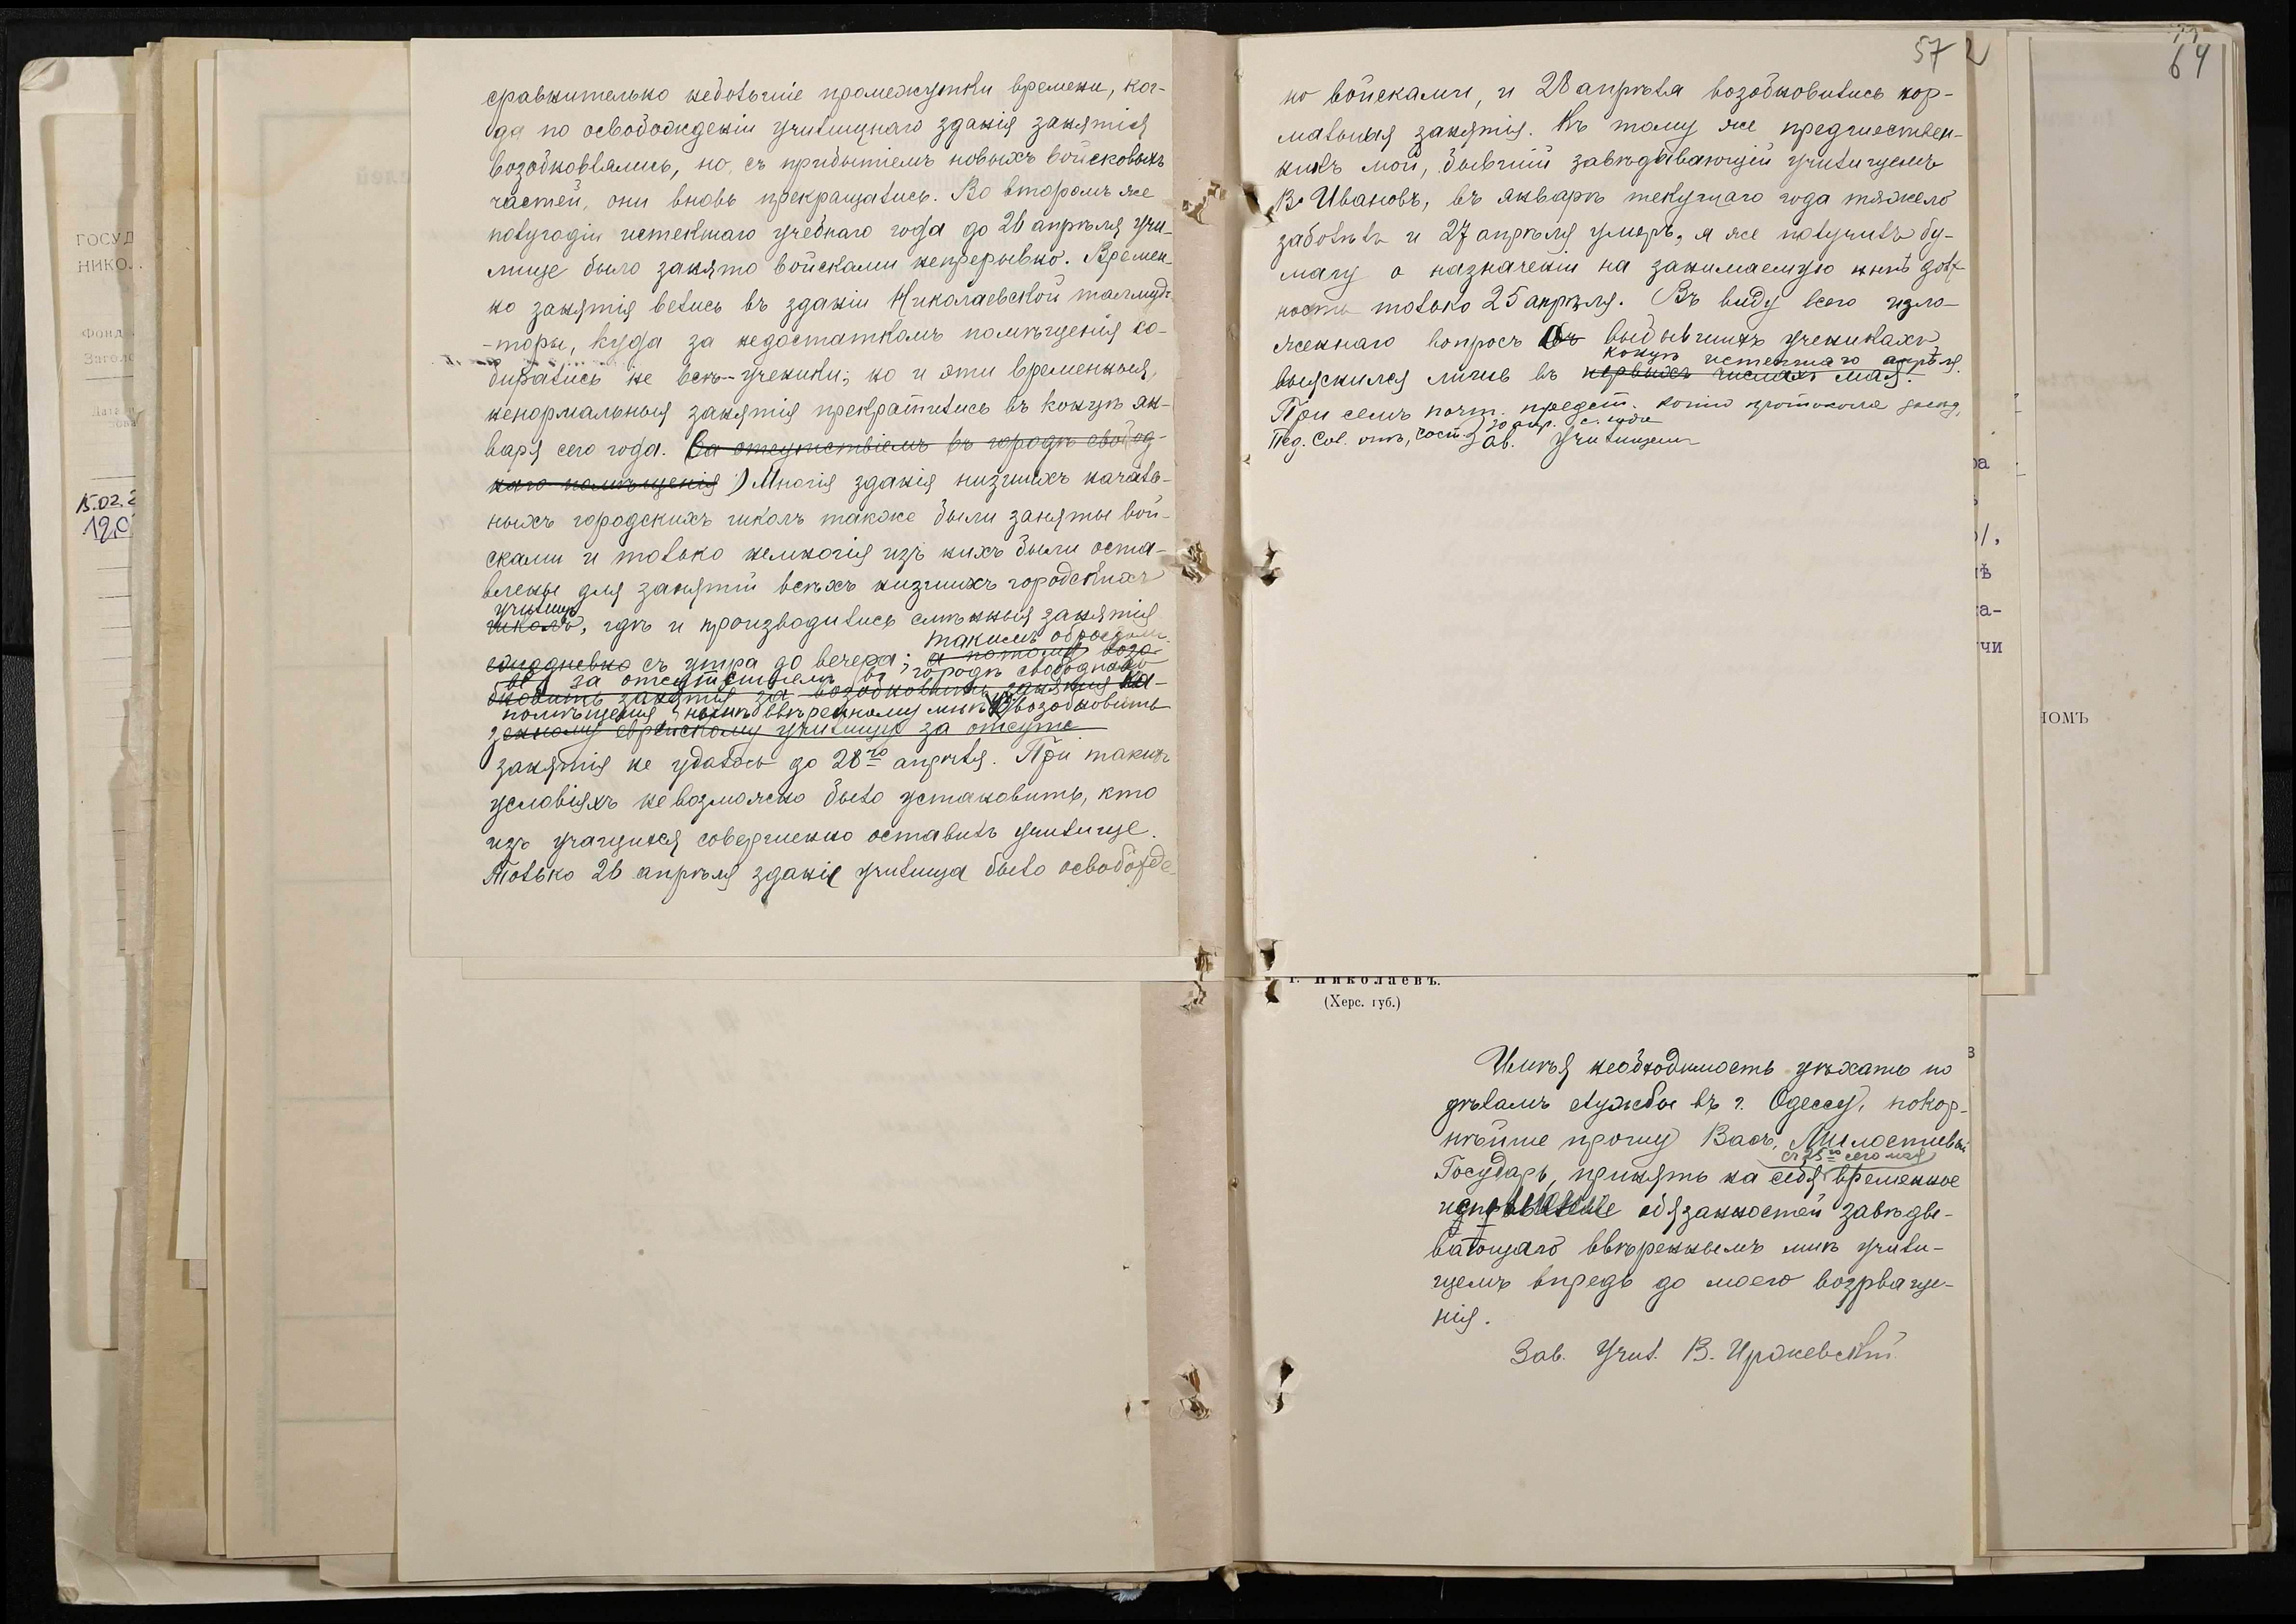 сравнительно небольшіе промежутки времени, ког-
да по освобожденіи училищнаго зданія занятія
возобновлялись, но, съ прибытіемъ новыхъ войсковыхъ
частей, они вновь прекращались. Во второмъ же
полугодіи истекшаго учебнаго года до 26 апрѣля учи-
лище было занято войсками непрерывно. Времен-
но занятія велись въ зданіи Николаевской талмудъ-
-торы, куда за недостаткомъ помѣщенія со-
бирались не всѣ ученики; но и эти временныя,
ненормальныя занятія прекратились въ концѣ ян-
варя сего года. (За отсутствіемъ въ городѣ свобод-
наго помѣщенія) Многія зданія низшихъ началь-
ныхъ городскихъ школъ также были заняты вой-
сками и только немногія изъ нихъ были оста-
влены для занятій всѣхъ низшихъ городскихъ
училищъ
школъ, гдѣ и производились смѣнныя занятія
такимъ образомъ
ежедневно съ утра до вечера; а потому возо-
за отсутствіемъ въ городѣ свободнаго
бновить занятія за возобновить занятія ка-
помѣщенія ввѣренному мнѣ возобновить
зенному еврейскому училищу за отсутс
занятія не удалось до 28го апрѣля. При такихъ
условіяхъ невозможно было установить, кто
изъ учащихся совершенно оставилъ училище.
Только 26 апрѣля зданіе училища было освобожде-
57
но войсками, и 28 апрѣля возобновились нор-
мальныя занятія. Къ тому же предшествен-
никъ мой, бывшій завѣдывающій училищемъ
В. Ивановъ, въ январѣ текущаго года тяжело
заболѣлъ и 27 апрѣля умеръ, я же получилъ бу-
магу о назначеніи на занимаемую нынѣ долж-
ность только 25 апрѣля. Въ виду всего изло-
женнаго вопросъ объ выбывшихъ ученикахъ
концѣ истекшаго апрѣля.
выяснился лишь въ первыхъ числахъ мая.
При семъ почт. предст. копію протокола засѣд.
30 апр. с. года
Пед. Сов. отъ, сост. Зав. Училищемъ
64
ГОСУД
НИКО
Фонд
15.02.2
ра
/,
лѣ
та-
чи
ІОМЪ
г. Николаевъ.
(Херс. губ.)
Имѣя необходимость уѣхать по
дѣламъ службы въ г. Одессу, покор-
нѣйше прошу Васъ, Милостивый
съ 25го сего мая
Государь, принять на себя временное
исполненіе обязанностей завѣды-
вающаго ввѣреннымъ мнѣ учили-
щемъ впредь до моего возрваще-
нія.
Зав. Учил. В. Иржевскій